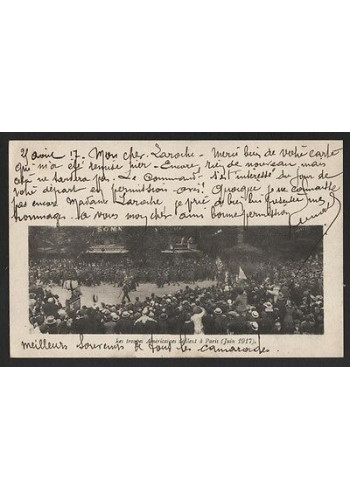 Mon cher Laroche - Merci bien de votre carte
qui m'a été remise hier - Encore rien de nouveau mais
ça ne tardera pas. Le Command^t s'est interessé du jour de
votre départ en permission - Quoique je ne connaisse
pas encore Madame Laroche je vous prie de bien lui présenter mes
hommages. à vous mon cher ami bonne permission
SOMA
Les troupes Américaines défilent à Paris (Juin 1917).
meilleurs souvenirs à tout les camarades.